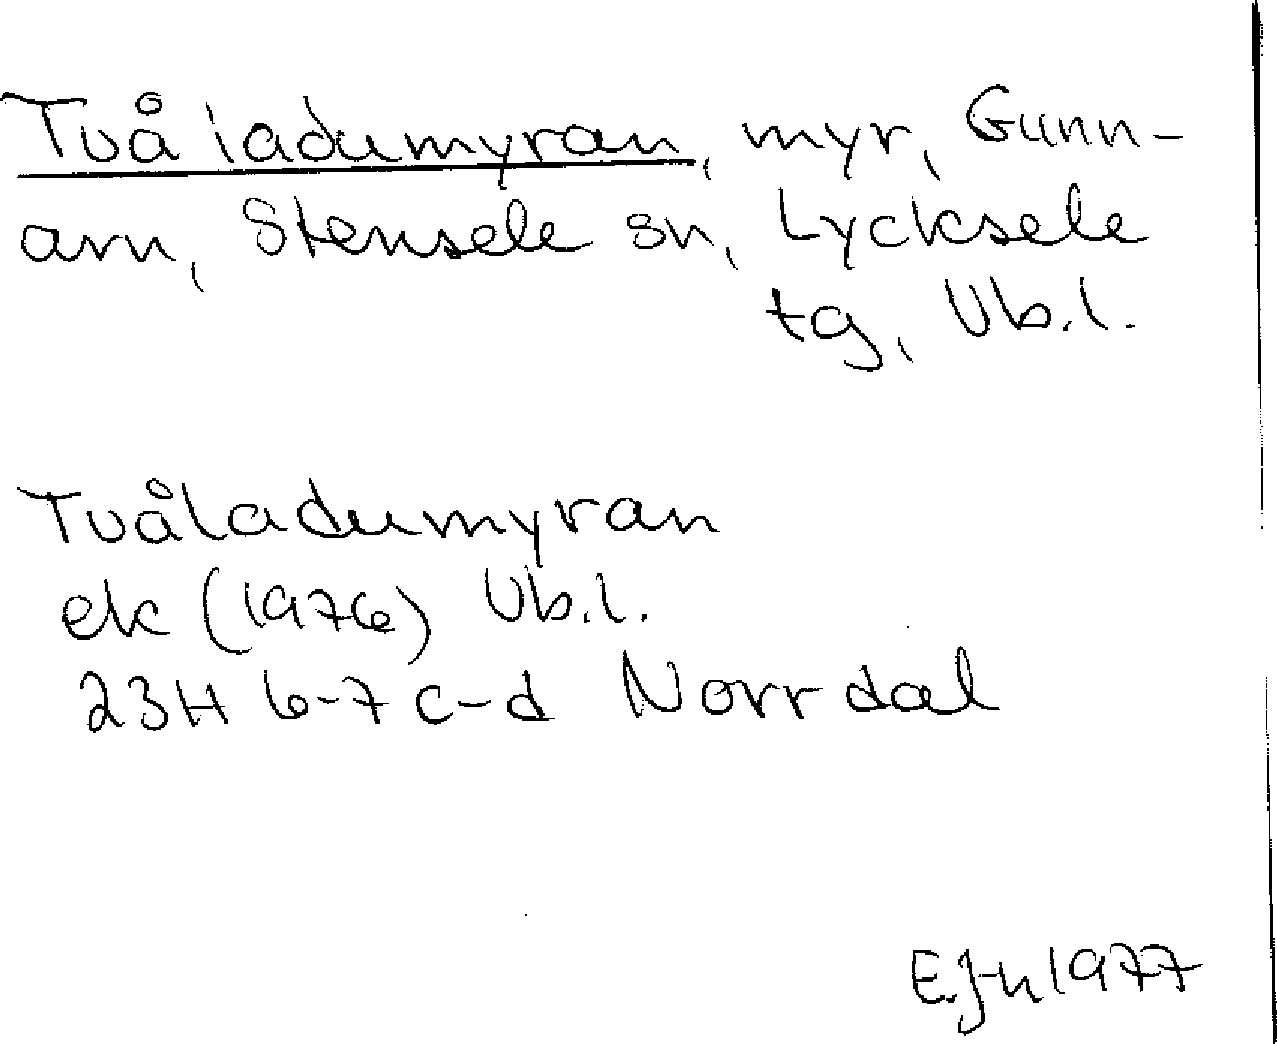 Tvåladumyran, myr, Gunn-
arn, Stensele sn, Lycksele
tg, Vb.l.
Tvåladumyran
ek (1976) Vb.l.
23H 6-7 c-d Norrdal
E.J-n 1977